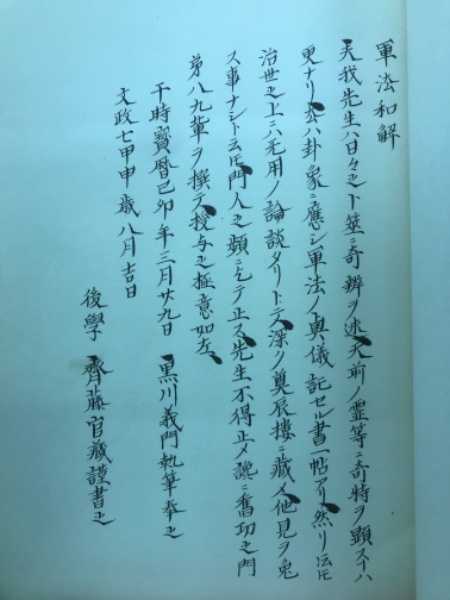 軍法和解
夫我先生ハ日々之卜筮ニ奇辨ヲ述天前ノ霊等ニ奇特ヲ顕スヿハ
更ナリハ卦象ニ應シ軍法ノ奥儀記セル書一帖アリ然リ𪜈
治世之上ニハ无用ノ論談タリトテ深ク奠辰樓ニ藏メ他見ヲ免
ス事ナシト云𪜈門人之頻ニ乞テ止ス先生不得止メ讒ニ舊功之門
弟八九輩ヲ撰テ授与之極意如左
干時寶暦己卯年三月廿九日 黒川義門執筆奉之
文政七甲申歳八月吉日
後學 齊藤官藏謹書之